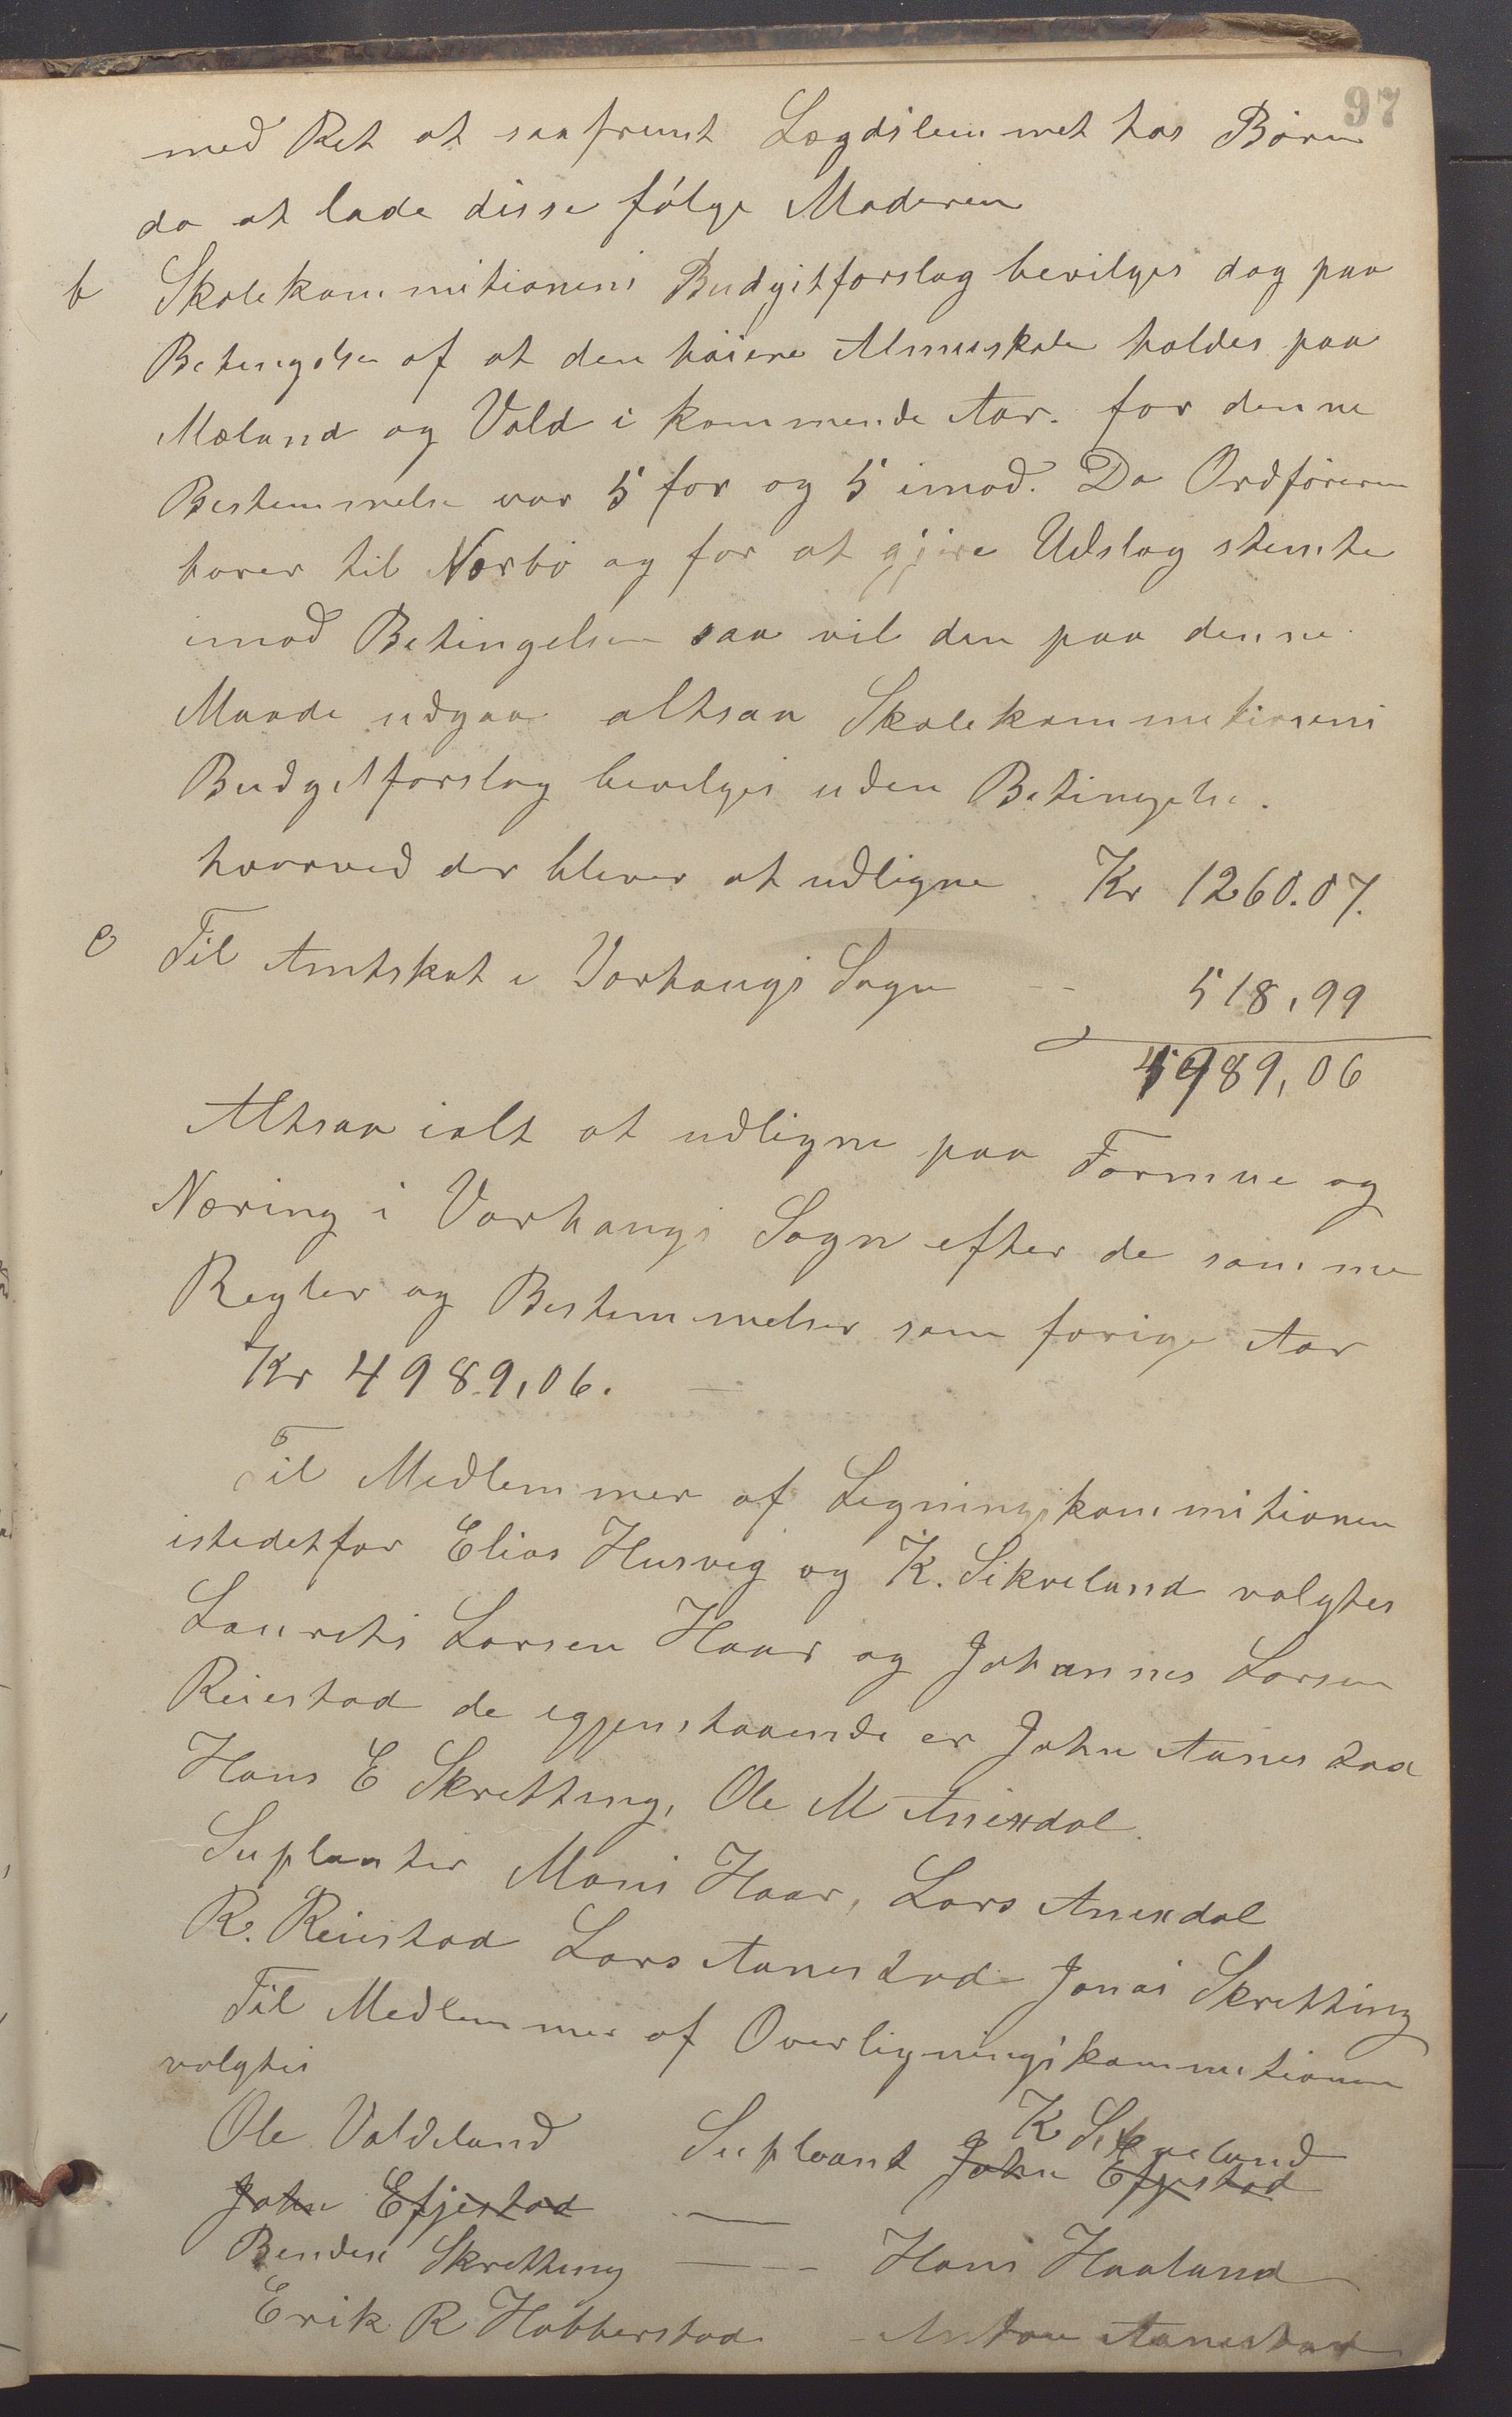 97
med Ret at saafremt Lægdslemmet har Børn
da at lade disse følge Moderen
b Skolekommitionens Budgetforslag bevilges dog paa
Betingelse af at den høiere Almuskole holdes paa
Mæland og Vold i kommende Aar. for denne
Bestemmelse var 5 for og 5 imod. Da Ordføreren
hører til Nærbø og for at gjøre Udslag stemte
imod Betingelsen saa vil den paa denne
Maade udgaa altsaa Skolekommetionens
Budgetforslag bevilges uden Betingelse.
hvorved der bliver at udligne Kr 1260.07.
c Til Amtskat i Varhaugs Sogn -- 518,99
4989,06
Altsaa ialt at udligne paa Formue og
Næring i Varhaugs Sogn efter de samme
Regler og Bestemmelser som forige Aar
Kr 4989,06.
Til Medlemmer af Ligningskommitionen
istedetfor Elias Husveg og K. Sikveland valgtes
Laurets Larsen Haar og Johannes Larsen
Reiestad de igjenstaaende er John Aanestad
Hans E Skretting, Ole M Anixdal.
Suplanter Mons Haar, Lars Anixdal
R. Reiestad Lars Aanestad Jonas Skretting
Til Medlemmer af Overligningskommitionen
valgtes
K Sikveland
Ole Valdeland Supleant John Efjestad
John Efjestad —
Bendix Skretting --- Hans Haaland
Erik R Hobberstad - Anton Aanestad